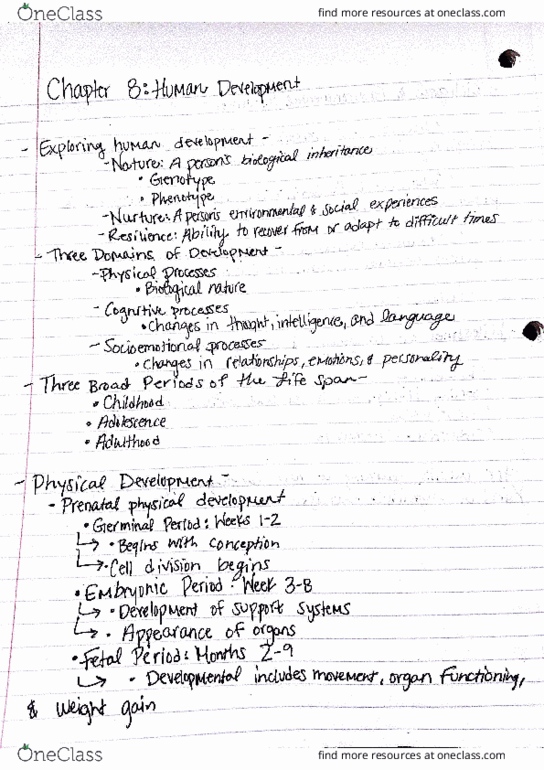 OneClass
find more resources at oneclass.com
Chapter 8: Human Development
- Exploring human development -
- Nature: A person's biological inheritance
• Genotype
• Phenotype
- Nurture: A person's environmental & social experiences
- Resilience: Ability to recover from or adapt to difficult times
- Three Domains of Development -
- Physical Processes
• Biological nature
- Cognitive processes
• Changes in thought, intelligence, and language
- Socioemotional processes
• Changes in relationships, emotions, & personality
- Three Broad Periods of the Life Span -
• Childhood
• Adolescence
• Adulthood
- Physical Development -
- Prenatal physical development
• Germinal Period: Weeks 1-2
↳ • Begins with conception
↳ • Cell division begins
• Embryonic Period: Week 3-8
↳ • Development of support systems
↳ • Appearance of organs
• Fetal Period: Months 2-9
↳ • Developmental includes movement, organ functioning,
& weight gain
OneClass
find more resources at oneclass.com